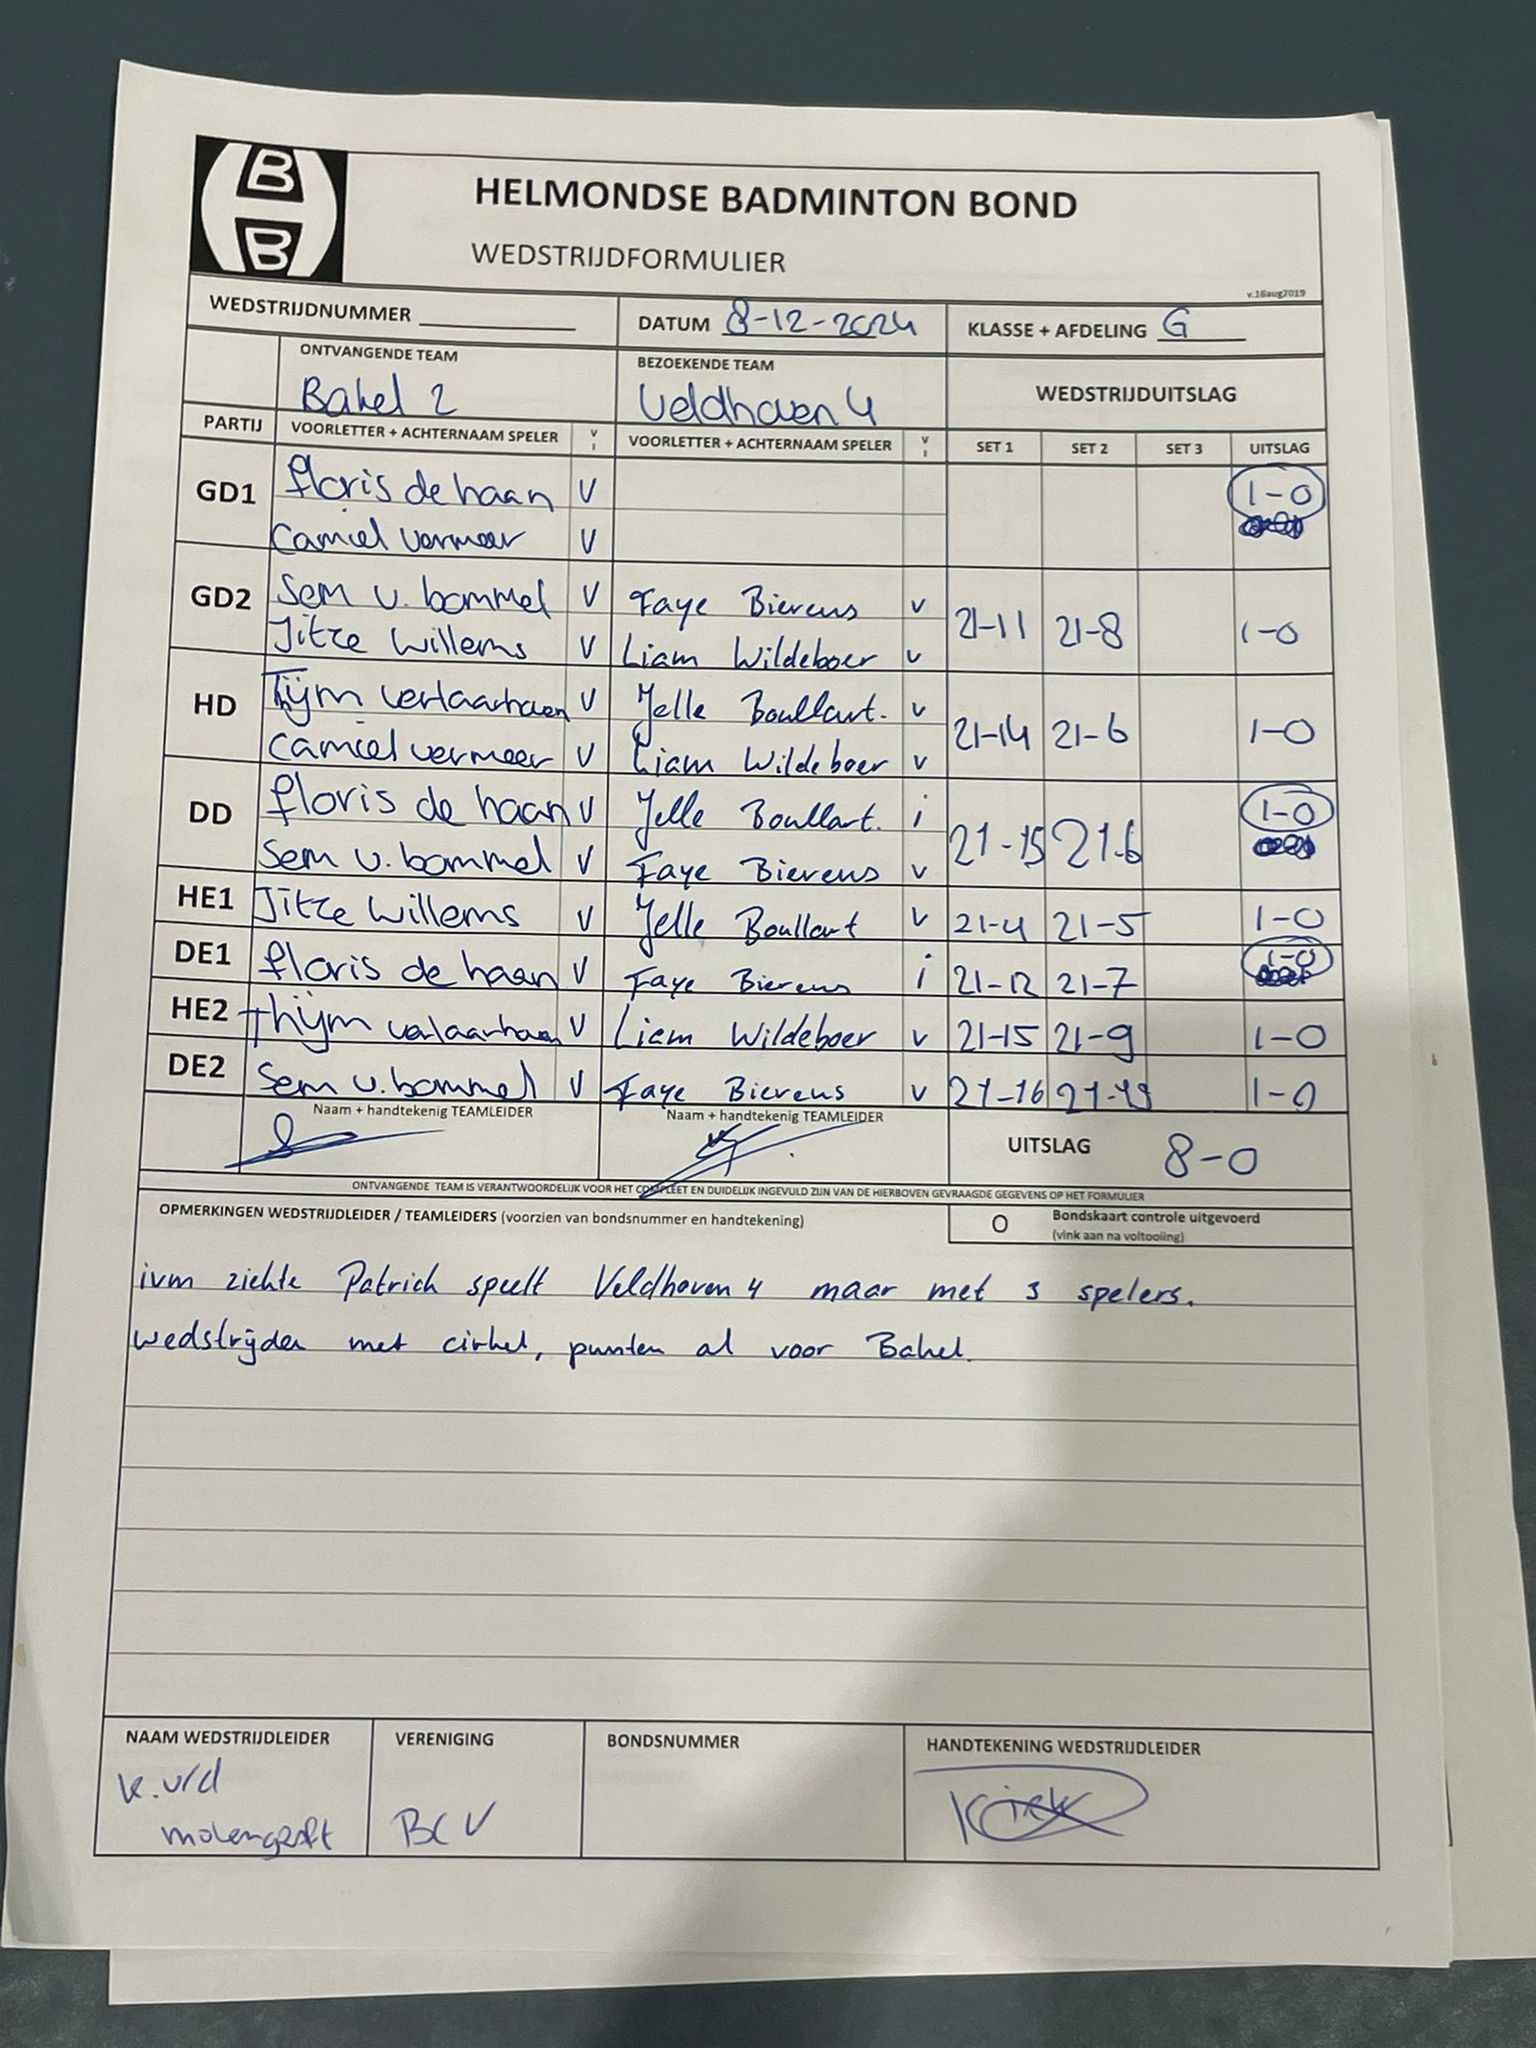 B
B
HELMONDSE BADMINTON BOND
WEDSTRIJDFORMULIER
v.16aug2019
WEDSTRIJDNUMMER DATUM 8-12-2024 KLASSE + AFDELING G
ONTVANGENDE TEAM BEZOEKENDE TEAM WEDSTRIJDUITSLAG
Bakel 2 Veldhoven 4
PARTIJ VOORLETTER + ACHTERNAAM SPELER V I VOORLETTER + ACHTERNAAM SPELER V I SET 1 SET 2 SET 3 UITSLAG
GD1 floris de haan V 1-0
Camiel vermeer V
GD2 Sem v. bommel V Faye Bierens v 21-11 21-8 1-0
Jitze Willems V Liam Wildeboer v
HD Tijm verlaarhoven V Jelle Boullart. v 21-14 21-6 1-0
Camiel vermeer V Liam Wildeboer v
DD floris de haan V Jelle Boullart. i 21-15 21-6 1-0
Sem v. bommel V Faye Bierens v
HE1 Jitze Willems V Jelle Boullart v 21-4 21-5 1-0
DE1 floris de haan V Faye Bierens i 21-12 21-7 1-0
HE2 Thijm verlaarhoven V Liam Wildeboer v 21-15 21-9 1-0
DE2 Sem v. bommel V Faye Bierens v 21-16 21-19 1-0
Naam + handtekenig TEAMLEIDER Naam + handtekenig TEAMLEIDER
UITSLAG 8-0
ONTVANGENDE TEAM IS VERANTWOORDELIJK VOOR HET COMPLEET EN DUIDELIJK INGEVULD ZIJN VAN DE HIERBOVEN GEVRAAGDE GEGEVENS OP HET FORMULIER
OPMERKINGEN WEDSTRIJDLEIDER / TEAMLEIDERS (voorzien van bondsnummer en handtekening) O Bondskaart controle uitgevoerd
(vink aan na voltooling)
ivm ziekte Patrick speelt Veldhoven 4 maar met 3 spelers.
wedstrijden met cirkel, punten al voor Bakel.
NAAM WEDSTRIJDLEIDER VERENIGING BONDSNUMMER HANDTEKENING WEDSTRIJDLEIDER
K. v/d
molengraft BCV